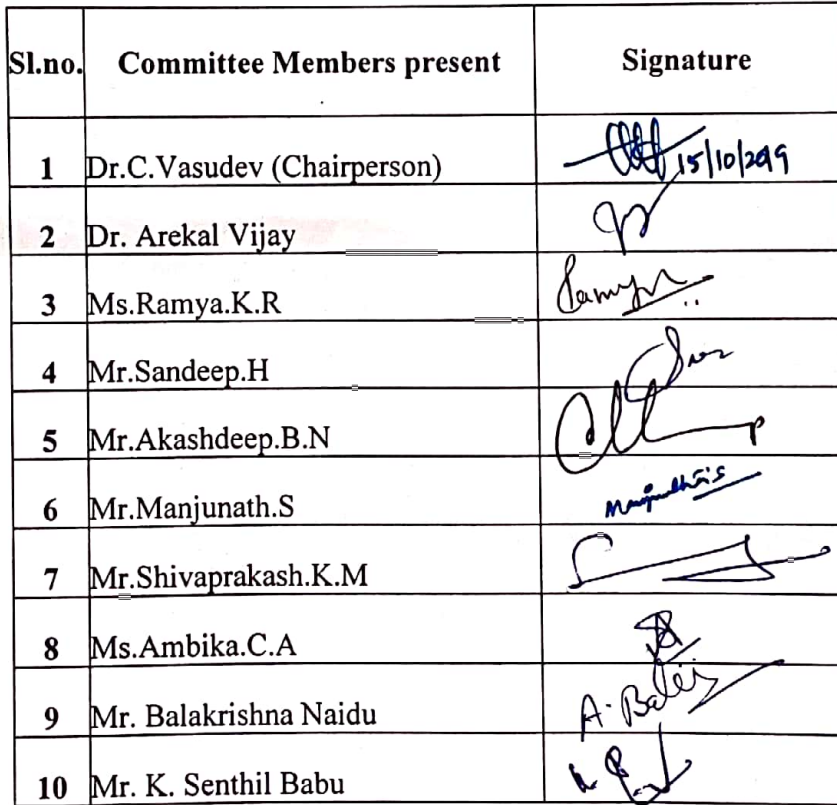 Sl.no. Committee Members present Signature
1 Dr.C.Vasudev (Chairperson) 15/10/2019
2 Dr. Arekal Vijay
3 Ms.Ramya.K.R
4 Mr.Sandeep.H
5 Mr.Akashdeep.B.N
6 Mr.Manjunath.S
7 Mr.Shivaprakash.K.M
8 Ms.Ambika.C.A
9 Mr. Balakrishna Naidu
10 Mr. K. Senthil Babu